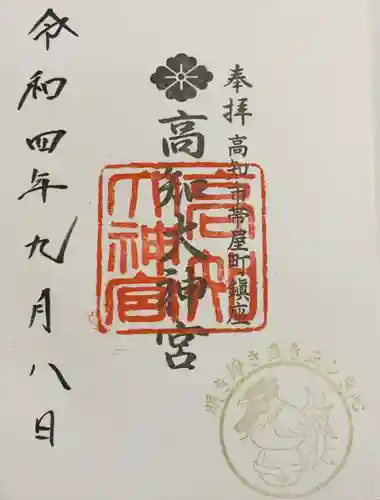 奉拝
高知市帯屋町鎮座
高知大神宮
高知大神宮
令和四年九月八日